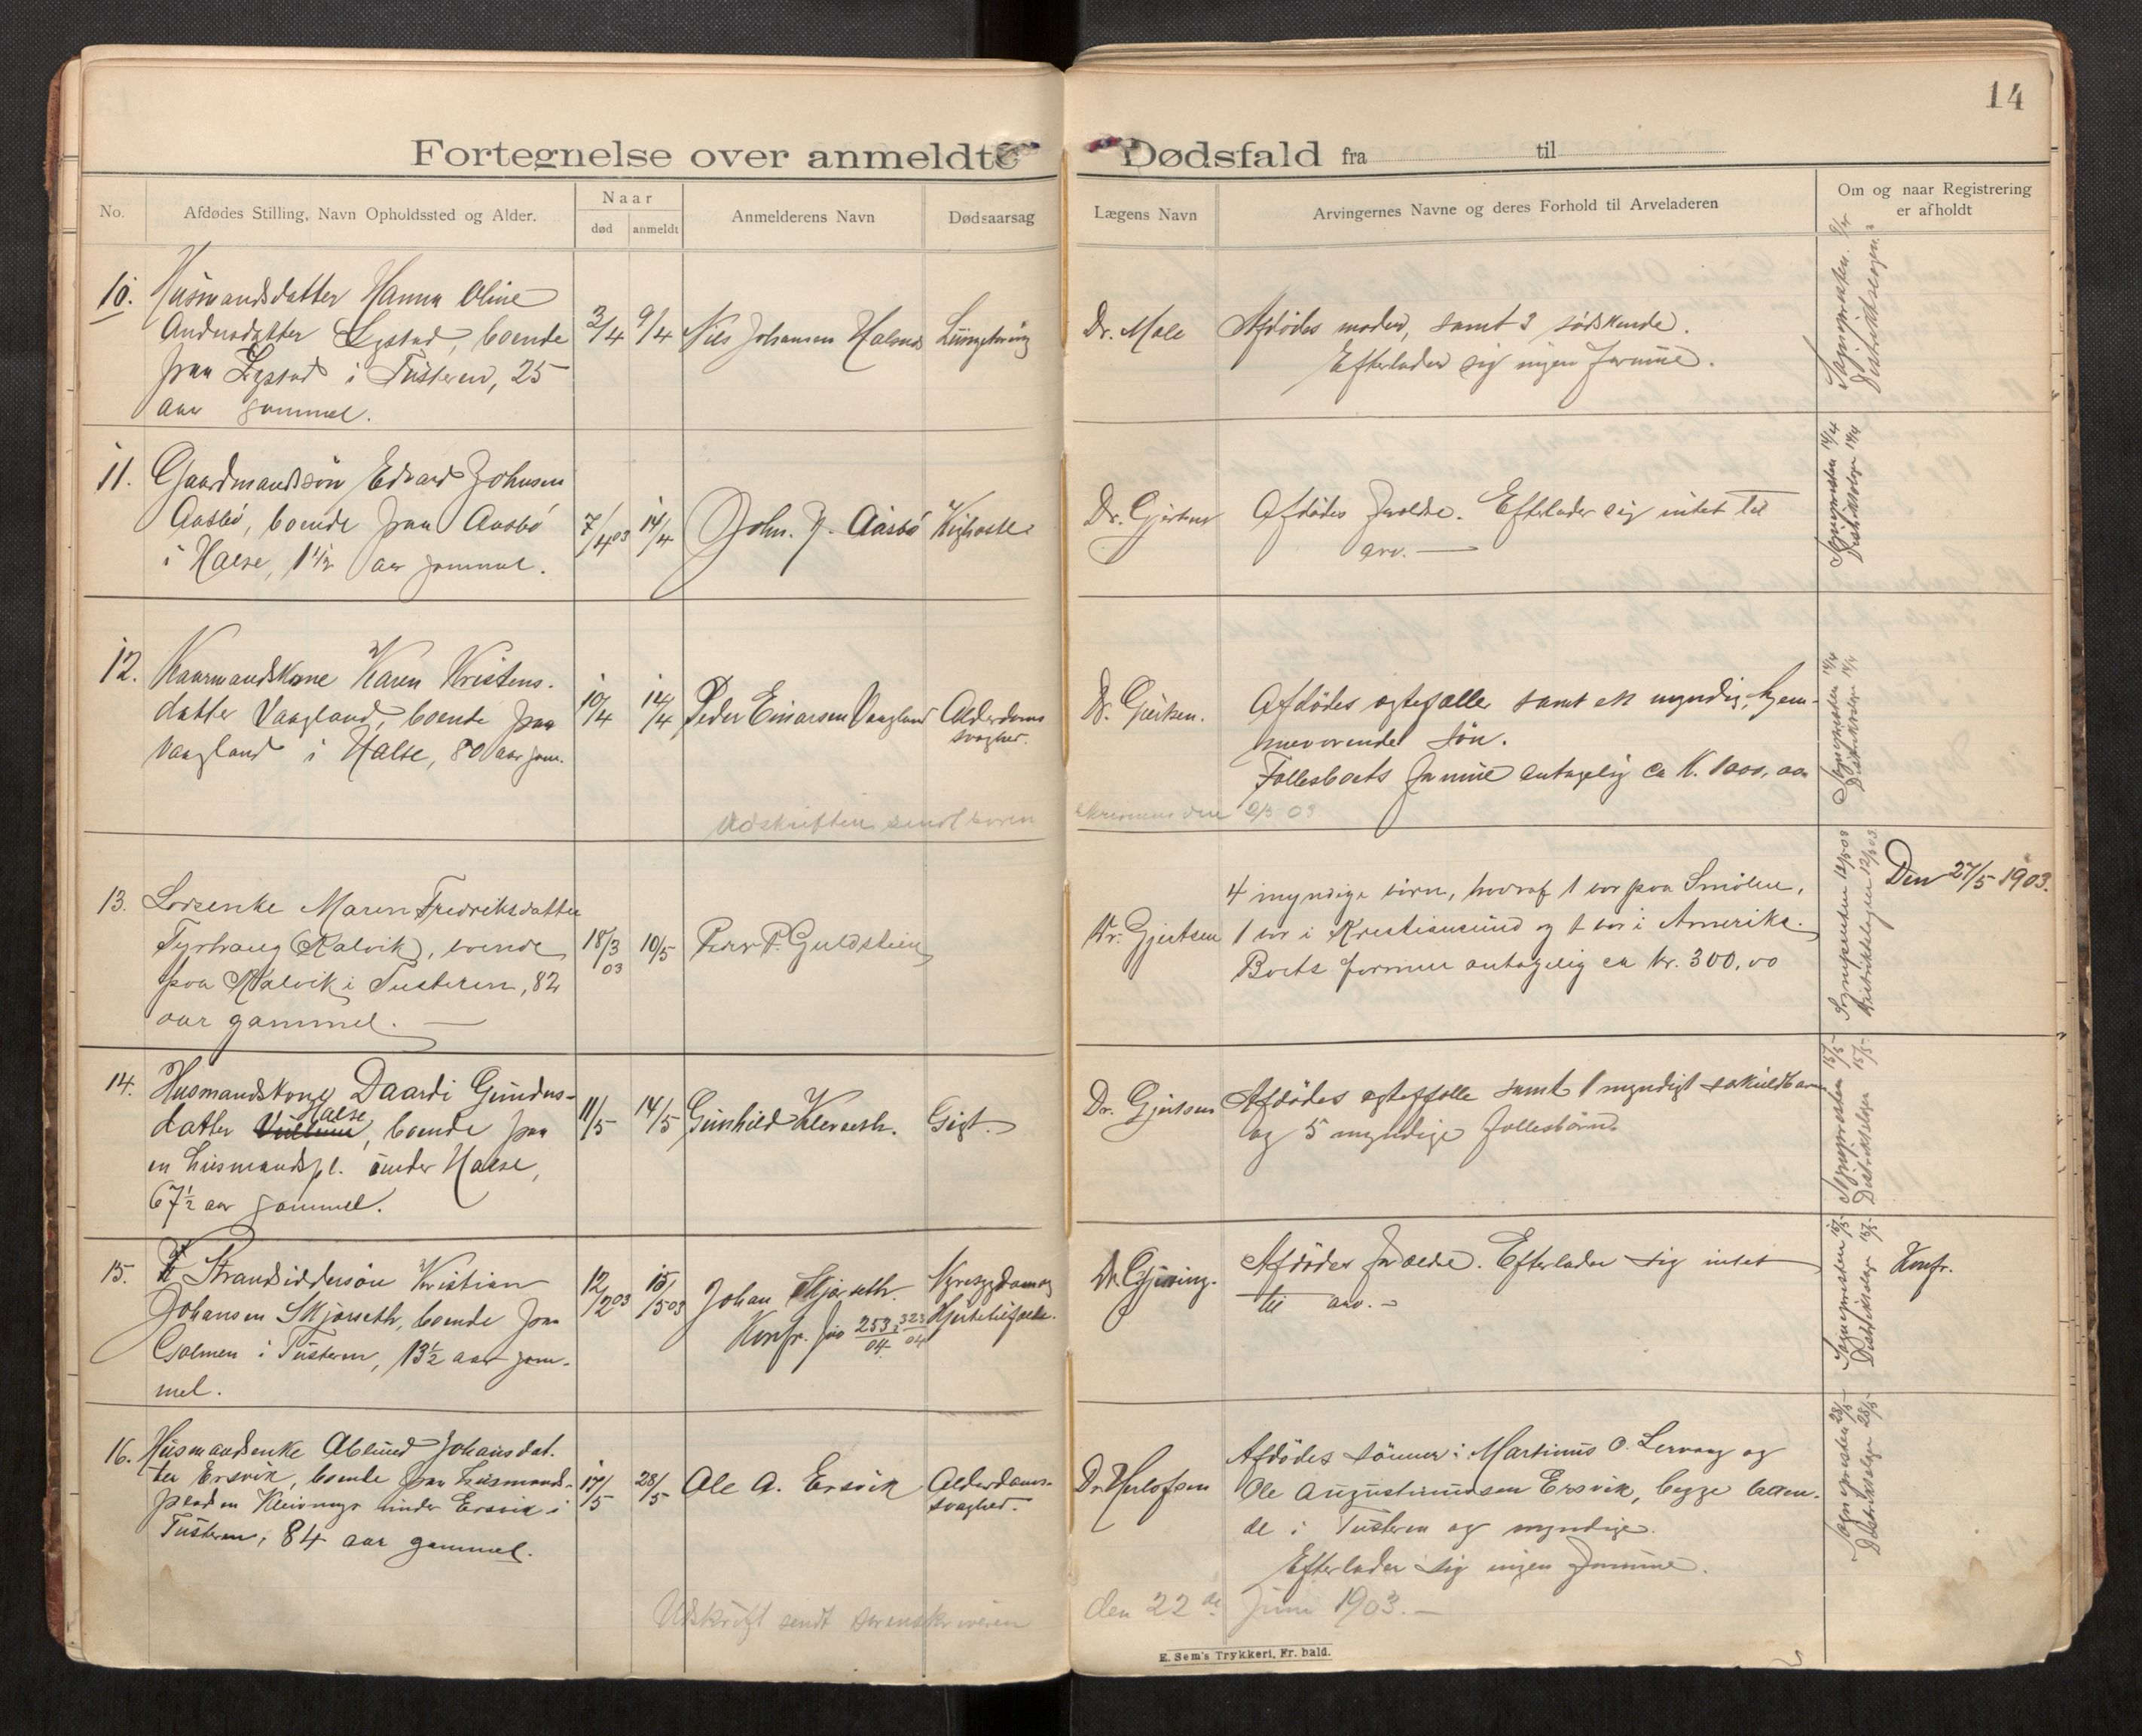 14
Fortegnelse over anmeldte Dødsfald fra til
No.
Afdødes Stilling, Navn Opholdssted og Alder.
Naar
død anmeldt
Anmelderens Navn
Dødsaarsag
Lægens Navn
Arvingernes Navne og deres Forhold til Arveladeren
Om og naar Registrering
er afholdt
10. Husmandsdatter Hanna Oline
Andersdatter Lystad, boende
paa Lystad i Tusteren, 25
aar gammel.
3/4 9/4 Nils Johansen
Dr. Møle
Afdødes moder, samt 3 søskende.
Efterlader sig ingen formue.
Sognepresten 9/4
11. Gaardmandssøn Edvard Johnsen
Aasbø, boende paa Aasbø
i Halse, 1 1/2 aar gammel.
7/4 03 14/4 John. J. Aasbø Kighoste
Dr. Gjertsen
Afdødes forældre. Efterlader sig intet til
arv.
Sognepresten 14/4
12. Kaarmandskone Karen Kristens-
datter Vaagland, boende paa
Vaagland i Halse, 80 aar gam.
10/4 14/4 Peder Einarsen Vaagland Alderdoms
svaghed.
Dr. Gjertsen.
Afdødes egtefælle samt en myndig, hjem-
meværende søn.
Fællesboets formue antagelig ca K. 1000,00
Sognepresten 14/4
Udskriften sendt soren
skriveren den 2/5 03
13. Losenke Maren Fredriksdatter
Tyrhaug (Kalvik), boende
paa Kalvik i Tusteren, 82
aar gammel.
18/3 03 10/5 Peder P. Guldstein
Dr. Gjertsen
4 myndige børn, hvoraf 1 bor paa Smølen,
1 bor i Kristiansund og 1 bor i Amerika.
Boets formue antagelig ca kr. 300,00
Sognepresten 12/5 03
Distriktslægen 12/5 03.
Den 27/5 1903.
14. Husmandskone Daardi Gundus-
Halse
datter, boende paa
en husmandspl. under Halse,
67 1/2 aar gammel.
11/5 14/5 Gunhild Kleveseth. Gigt.
Dr. Gjertsen
Afdødes egtefælle samt 1 myndigt særkuldbarn
og 5 myndige fællesbørn.
Sognepresten 15/5
Distriktslægen 15/5
15. Strandsiddersøn Kristian
Johansen Skjørseth, boende paa
Golmen i Tusteren, 13 1/2 aar gam-
mel.
12/2 03 15/5 03 Johan Skjørseth.
Konfr. Jno 253/04, 323/04
Nyresygdom og
Hjertetilfælde.
Afdødes forældre. Efterlader sig intet
til arv.
Sognepresten 15/5
Distriktslægen 15/5
Konfr.
16. Husmandsenke Ablund Johansdat-
ter Ersvik, boende paa husmands-
pladsen under Ersvik i
Tusteren, 84 aar gammel.
17/5 28/5 Ole A. Ersvik Alderdoms-
svaghed.
Dr Herlofsen
Afdødes sønner: Martinus O. Lervaag og
Ole Augustinussen Ersvik, begge boen-
de i Tusteren og myndige.
Efterlader sig ingen formue.
Sognepresten 28/5
Distriktslægen 28/5
Udskrift sendt sorenskriveren
den 22de Juni 1903.
E. Sem's Trykkeri, Fr. hald.